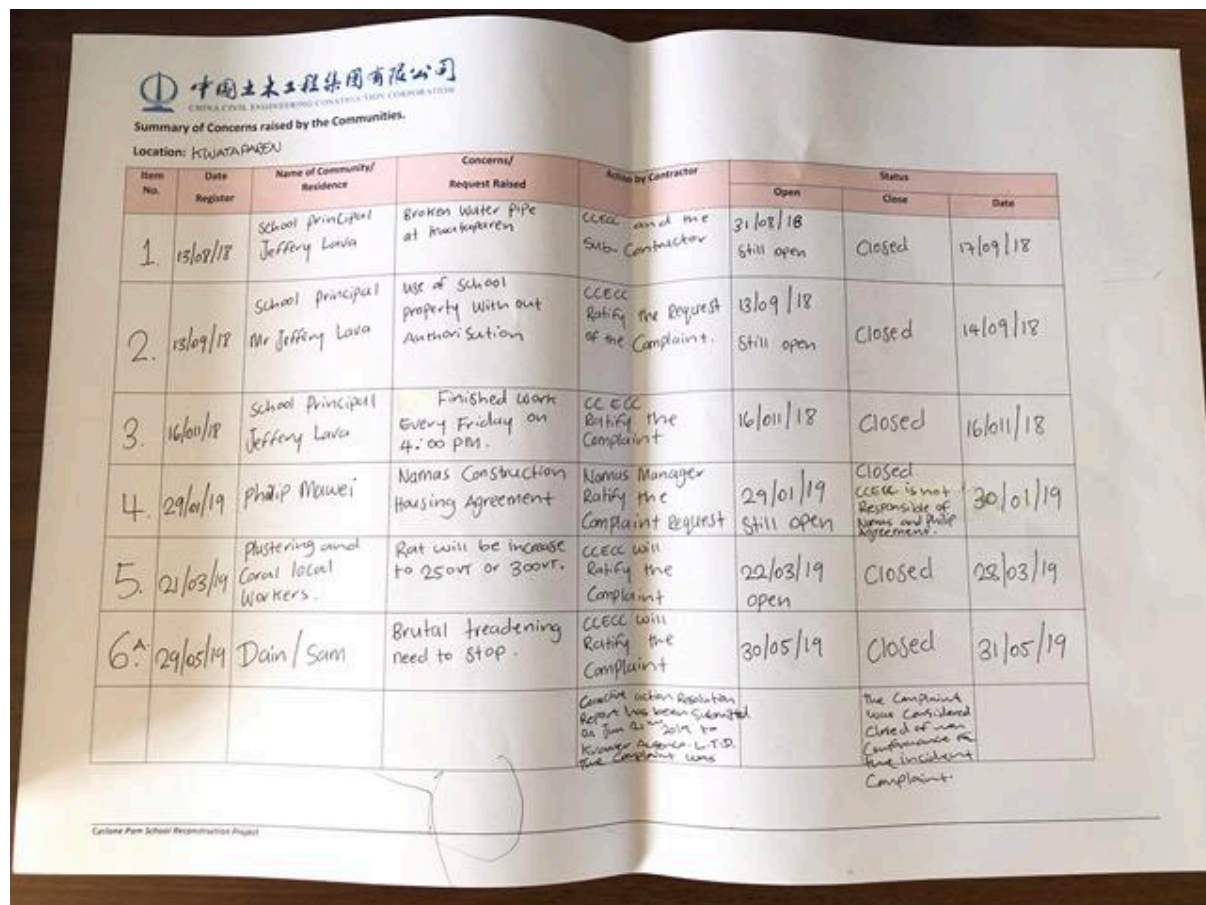 中国土木工程集团有限公司
CHINA CIVIL ENGINEERING CONSTRUCTION CORPORATION
Summary of Concerns raised by the Communities.
Location: KWATAPAREN
Item No. Date Register Name of Community/ Residence Concerns/ Request Raised Action by Contractor Status
Open Close Date
1. 13/08/18
School Principal
Jeffery Lava
Broken Water Pipe
at Kwataparen
CCECC and the
Sub-Contractor
31/08/18
Still open
Closed
17/09/18
2. 13/09/18
School Principal
Mr Jeffery Lava
Use of School
property With out
Authorisation
CCECC
Ratify the Request
of the Complaint.
13/09/18
Still open
Closed
14/09/18
3. 16/011/18
School Principal
Jeffery Lava
Finished work
Every Friday on
4:00 PM.
CCECC
Ratify the
Complaint
16/011/18
Closed
16/011/18
4. 29/01/19
Philip Mawei
Namas Construction
Housing Agreement
Namas Manager
Ratify the
Complaint Request
29/01/19
Still open
Closed
CCECC is not
Responsible of
Namas and Philip
Agreement.
30/01/19
5. 21/03/19
Plustering and
Coral local
Workers.
Rat will be increase
to 250VT or 300VT.
CCECC will
Ratify the
Complaint
22/03/19
open
Closed
28/03/19
6. 29/05/19
Dain/Sam
Brutal treadening
need to stop.
CCECC will
Ratify the
Complaint
30/05/19
Closed
31/05/19
action Resolution
Report has been Submitted
2019 to
Kramer L.T.D.
The Complaint was
The Complaint
was Considered
Closed of non
Conformance of
the incident
Complaint.
Cyclone Pam School Reconstruction Project